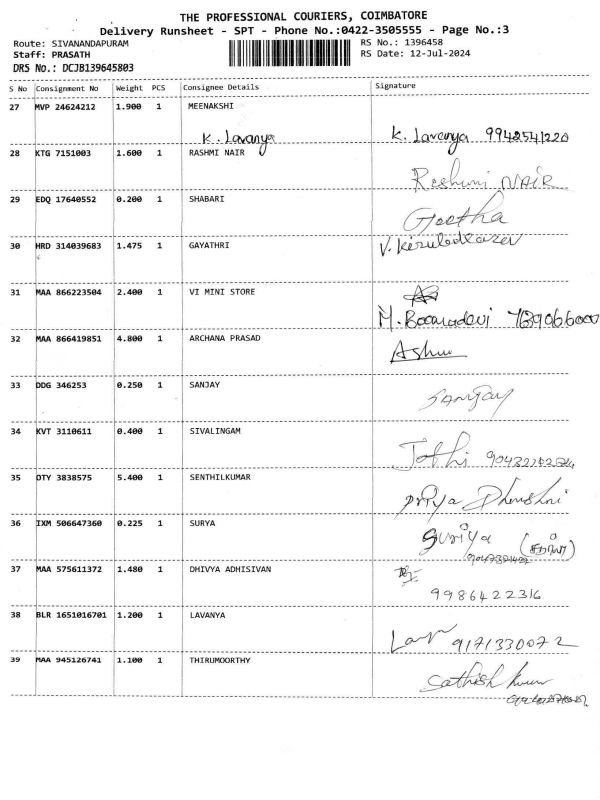 THE PROFESSIONAL COURIERS, COIMBATORE
Delivery Runsheet - SPT - Phone No.:0422-3505555 - Page No.:3
Route: SIVANANDAPURAM RS No.: 1396458
Staff: PRASATH RS Date: 12-Jul-2024
DRS No.: DCJB139645803
S No Consignment No Weight PCS Consignee Details Signature
27 MVP 24624212 1.900 1 MEENAKSHI
K. Lavanya K. Lavanya 9942541220
28 KTG 7151003 1.600 1 RASHMI NAIR
Rashmi NAIR
29 EDQ 17640552 0.200 1 SHABARI
Geetha
30 HRD 314039683 1.475 1 GAYATHRI
31 MAA 866223504 2.400 1 VI MINI STORE
32 MAA 866419851 4.800 1 ARCHANA PRASAD
33 DDG 346253 0.250 1 SANJAY
SANJAY
34 KVT 3110611 0.400 1 SIVALINGAM
Jothi
35 OTY 3838575 5.400 1 SENTHILKUMAR
Priya
36 IXM 506647360 0.225 1 SURYA
Suriya
37 MAA 575611372 1.480 1 DHIVYA ADHISIVAN
9986422316
38 BLR 1651016701 1.200 1 LAVANYA
9171330072
39 MAA 945126741 1.100 1 THIRUMOORTHY
Sathish Kumar